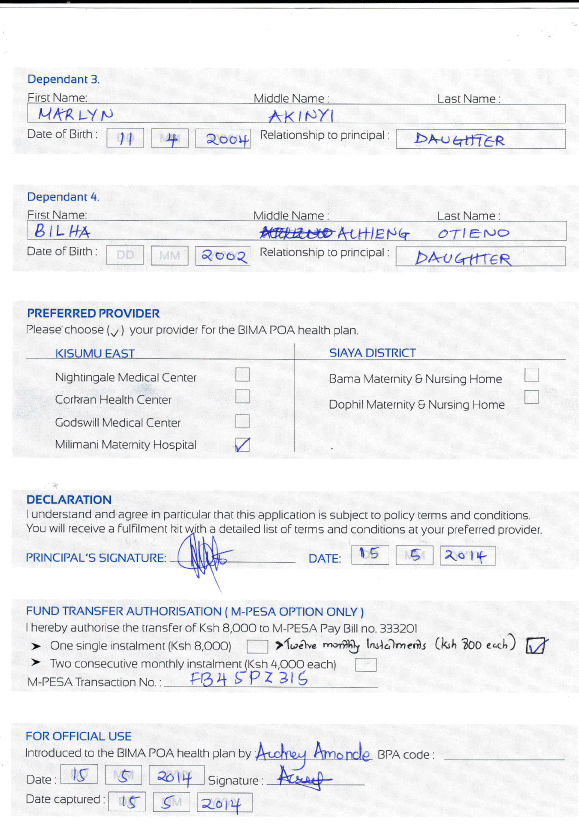 Dependant 3.
First Name: Middle Name : Last Name :
MARLYN AKINYI
Date of Birth : 11 4 2004 Relationship to principal : DAUGHTER
Dependant 4.
First Name: Middle Name : Last Name :
BILHA ACHIENG OTIENO
Date of Birth : DD MM 2002 Relationship to principal : DAUGHTER
PREFERRED PROVIDER
Please choose (✓) your provider for the BIMA POA health plan.
KISUMU EAST SIAYA DISTRICT
Nightingale Medical Center Bama Maternity & Nursing Home
Corkran Health Center Dophil Maternity & Nursing Home
Godswill Medical Center
Milimani Maternity Hospital ✓
DECLARATION
I understand and agree in particular that this application is subject to policy terms and conditions.
You will receive a fulfilment kit with a detailed list of terms and conditions at your preferred provider.
PRINCIPAL'S SIGNATURE: DATE: 15 5 2014
FUND TRANSFER AUTHORISATION ( M-PESA OPTION ONLY )
I hereby authorise the transfer of Ksh 8,000 to M-PESA Pay Bill no. 333201
➤ One single instalment (Ksh 8,000) >Twelve monthly Instalments (ksh 800 each) ✓
➤ Two consecutive monthly instalment (Ksh 4,000 each)
M-PESA Transaction No. : FB45PZ315
FOR OFFICIAL USE
Introduced to the BIMA POA health plan by Audrey Amonde BPA code :
Date : 15 5 2014 Signature :
Date captured : 15 5 2014